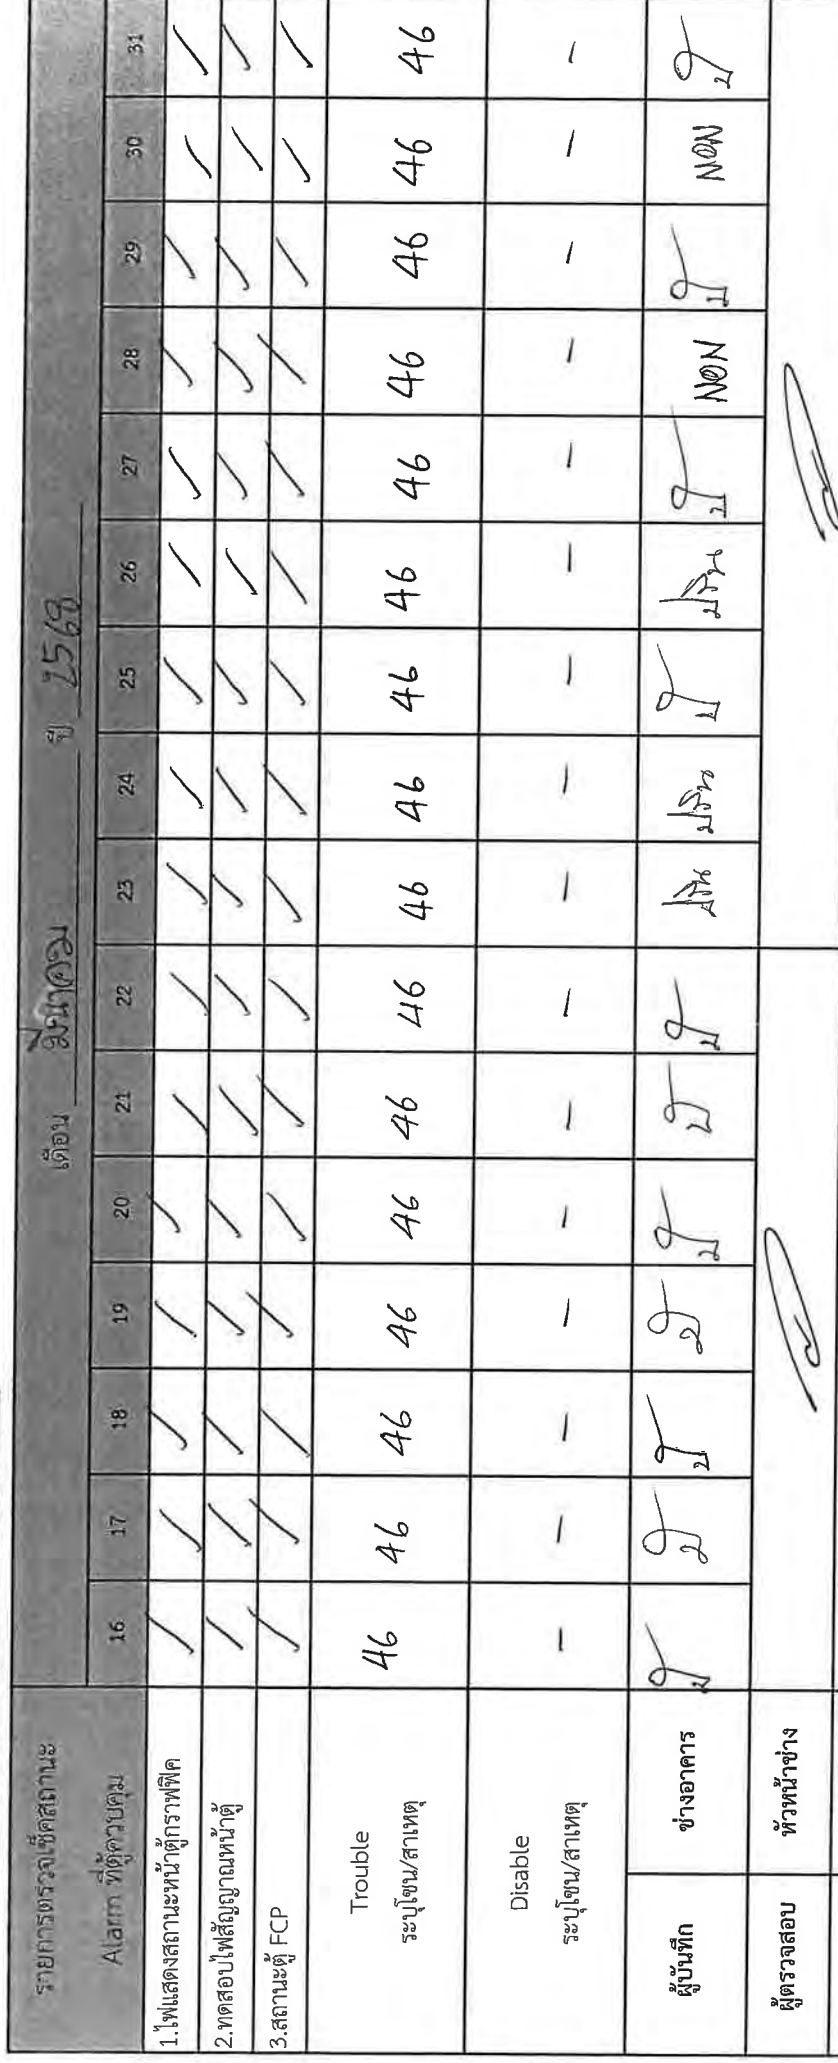 รายการตรวจเช็คสถานะ เดือน มีนาคม ปี 2568
Alarm ที่ตู้ควบคุม 16 17 18 19 20 21 22 23 24 25 26 27 28 29 30 31
1.ไฟแสดงสถานะหน้าตู้กราฟฟิค / / / / / / / / / / / / / / / /
2.ทดสอบไฟสัญญาณหน้าตู้ / / / / / / / / / / / / / / / /
3.สถานะตู้ FCP / / / / / / / / / / / / / / / /
Trouble
ระบุโซน/สาเหตุ 46 46 46 46 46 46 46 46 46 46 46 46 46 46 46 46
Disable
ระบุโซน/สาเหตุ - - - - - - - - - - - - - - - -
ผู้บันทึก ช่างอาคาร NON NON
ผู้ตรวจสอบ หัวหน้าช่าง